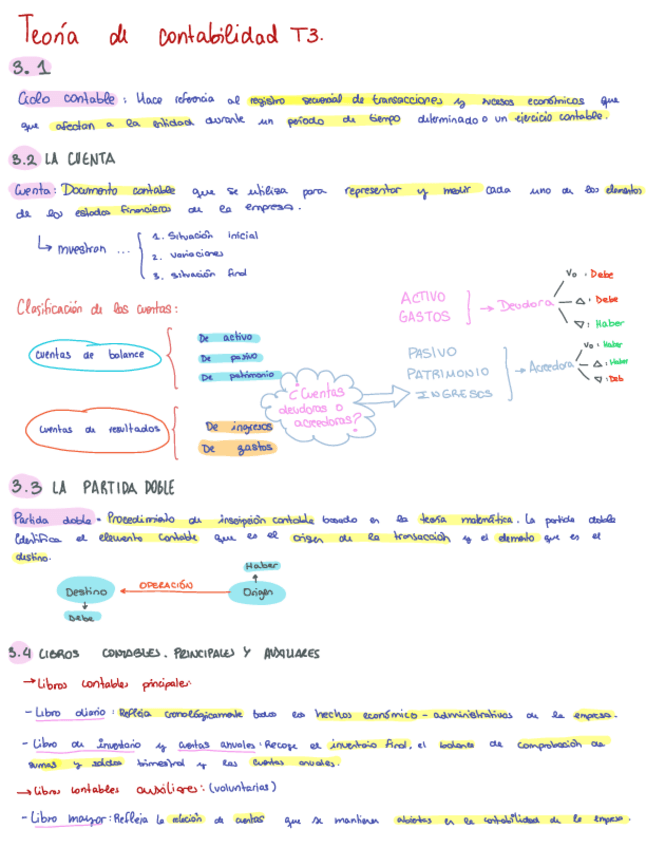 Teoría de contabilidad T3.
3.1
Ciclo contable : Hace referencia al registro secuencial de transacciones y sucesos económicos que
que afectan a la entidad durante un período de tiempo determinado o un ejercicio contable.
3.2 LA CUENTA
Cuenta : Documento contable que se utiliza para representar y medir cada uno de los elementos
de los estados financieros de la empresa.
↳ muestran ...
1. Situación inicial
2. variaciones
3. situación final
Clasificación de las cuentas :
cuentas de balance
De activo
De pasivo
De patrimonio
cuentas de resultados
De ingresos
De gastos
¿Cuentas
deudoras o
acreedoras?
ACTIVO
GASTOS
→ Deudora
Vo : Debe
△ : Debe
▽ : Haber
PASIVO
PATRIMONIO
INGRESOS
→ Acreedora
Vo : Haber
△ : Haber
▽ : Deb
3.3 LA PARTIDA DOBLE
Partida doble = Procedimiento de inscripción contable basado en la teoría matemática. La partida doble
identifica el elemento contable que es el origen de la transacción y el elemento que es el
destino.
Haber
Destino
OPERACIÓN
Origen
Debe
3.4 LIBROS CONTABLES. PRINCIPALES Y AUXILIARES
→ Libros contables principales:
- Libro diario : Refleja cronológicamente todos los hechos económico - administrativos de la empresa.
- Libro de inventario y cuentas anuales : Recoge el inventario final, el balance de comprobación de
sumas y saldos trimestral y las cuentas anuales.
→ Libros contables auxiliares : (voluntarias)
- Libro mayor : Refleja la relación de cuentas que se mantienen abiertas en la contabilidad de la empresa.